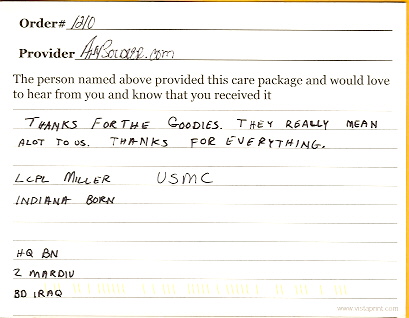 Order# 1210
Provider AnySoldier.com
The person named above provided this care package and would love
to hear from you and know that you received it
THANKS FOR THE GOODIES. THEY REALLY MEAN
ALOT TO US. THANKS FOR EVERYTHING.
LCPL MILLER USMC
INDIANA BORN
HQ BN
2 MARDIV
BD IRAQ
www.vistaprint.com